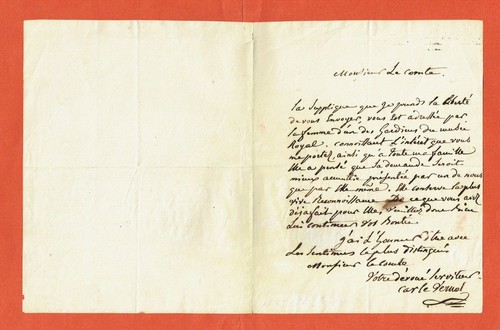 Monsieur Le comte.
la Supplique que Je prends la liberté
de vous Envoyer, vous est adressée par
la femme d'un des Gardiens du musée
Royal. connoissant l'intéret que vous
me portez, ainsi qu'a toute ma famille
Elle a pensé que sa demande seroit
mieux accueillie présentée par un de nous
que par Elle même. Elle conserve la plus
vive Reconnoissance De ce que vous avez
déja fait pour Elle, veuillez donc bien
Lui continuer vos Bontés
j'ai L'honneur d'être avec
Les Sentimens les plus distingués
Monsieur le comte
Votre dévoué serviteur
carle Vernet